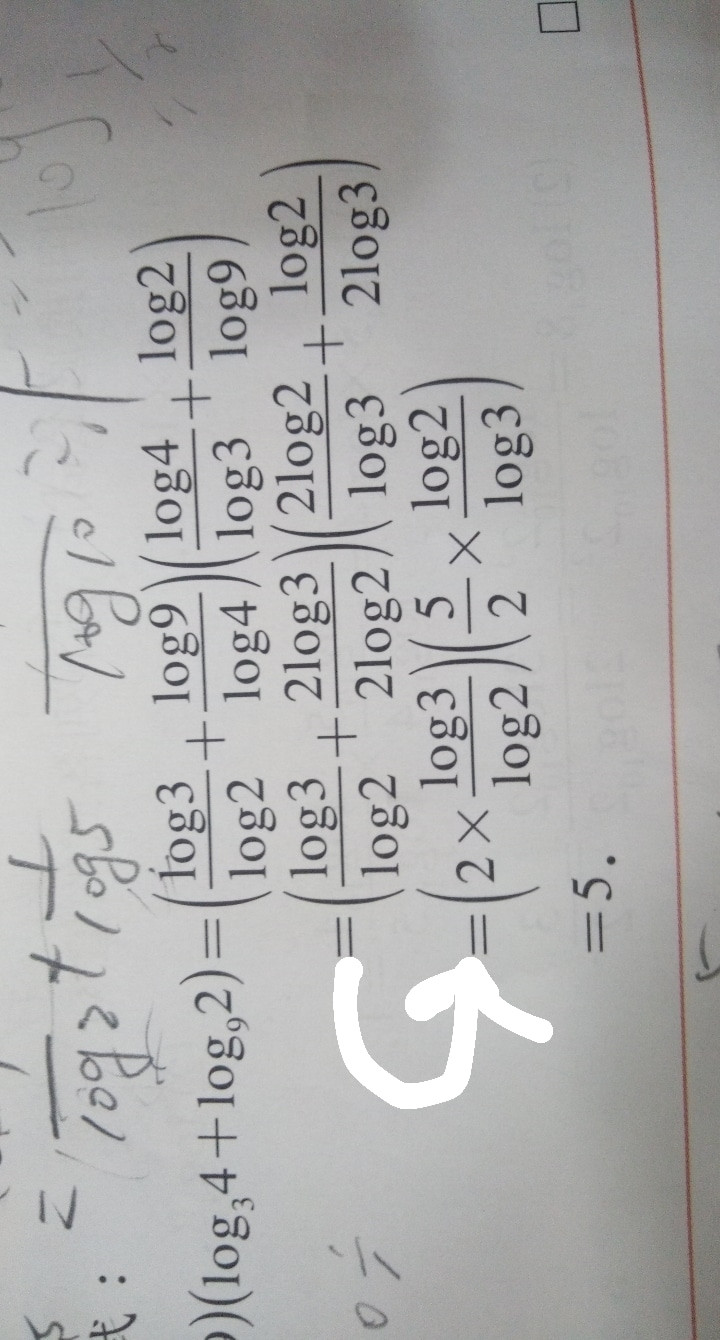 = 1/log2 + 1/log5
log10
)(log₃4+log₉2)=(log3/log2 + log9/log4)(log4/log3 + log2/log9)
=(log3/log2 + 2log3/2log2)(2log2/log3 + log2/2log3)
=(2×log3/log2)(5/2×log2/log3)
=5.
□